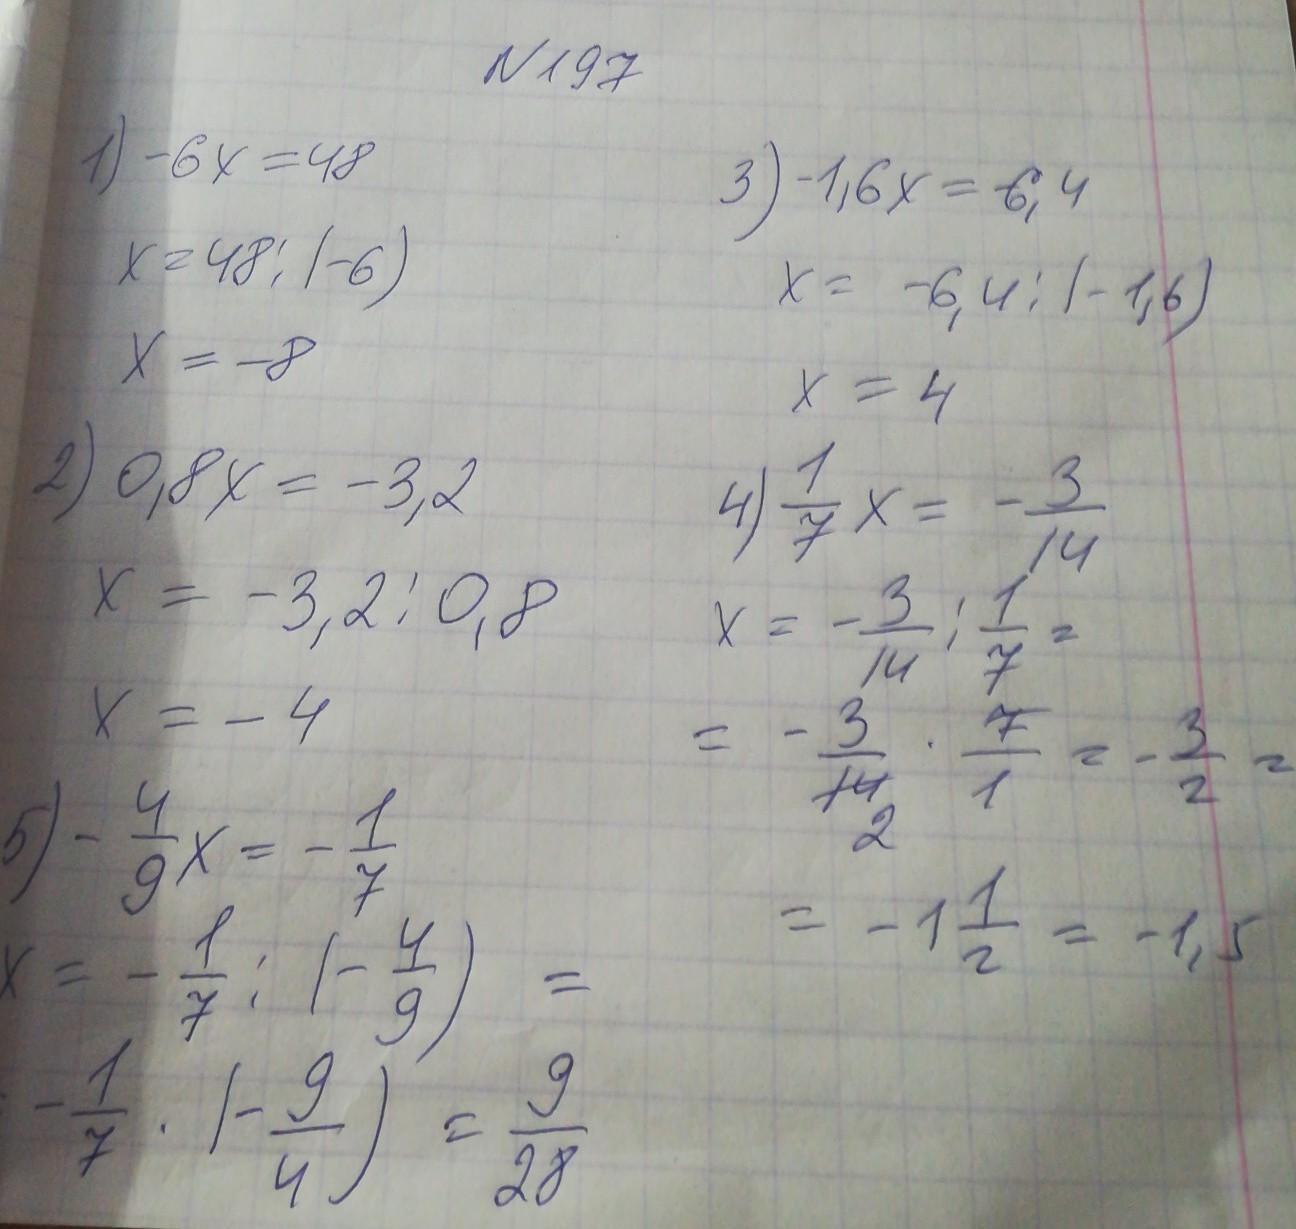 N197
1) -6x = 48
x = 48 : (-6)
x = -8
2) 0,8x = -3,2
x = -3,2 : 0,8
x = -4
5) - 4/9 x = - 1/7
x = - 1/7 : (- 4/9) =
= - 1/7 · (- 9/4) = 9/28
3) -1,6x = -6,4
x = -6,4 : (-1,6)
x = 4
4) 1/7 x = - 3/14
x = - 3/14 : 1/7 =
= - 3/14 · 7/1 = - 3/2 =
2
= -1 1/2 = -1,5